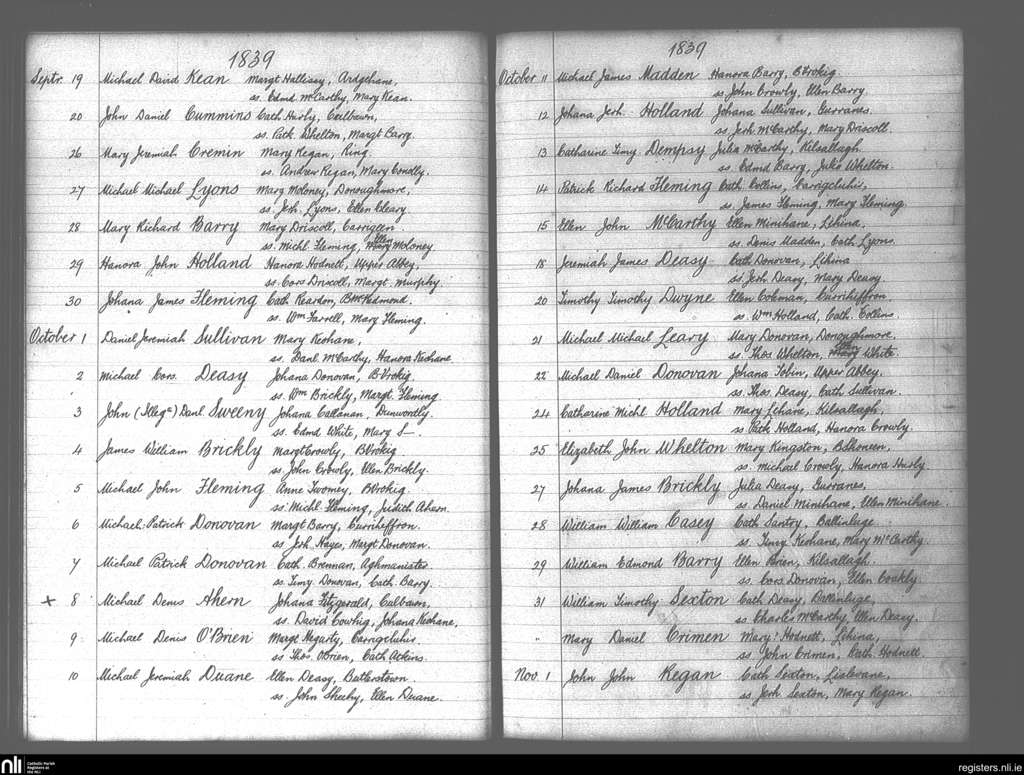 1839
Septr. 19 Michael David Kean Margt Hallissy, Ardgehane,
ss. Edmd McCarthy, Mary Kean.
20 John Daniel Cummins Cath Hurly, Culbawn,
ss. Patk Whelton, Margt Barry.
26 Mary Jeremiah Cremin Mary Regan, Ring.
ss. Andrew Regan, Mary Conolly.
27 Michael Michael Lyons Mary Moloney, Donoughmore,
ss. Jerh. Lyons, Ellen Cleary.
28 Mary Richard Barry Mary Driscoll, Carrigeen.
ss. Michl Fleming, Ellen Moloney.
29 Hanora John Holland Hanora Hodnett, Upper Abbey,
ss. Cors Driscoll, Margt Murphy.
30 Johana James Fleming Cath Reardon, BMcRedmond.
ss. Wm Farrell, Mary Fleming.
October 1 Daniel Jeremiah Sullivan Mary Keohane,
ss. Danl McCarthy, Hanora Keohane.
2 Michael Cors. Deasy Johana Donovan, BVrokig.
ss. Wm Brickly, Margt Fleming
3 John (Illeg.) Danl Sweeny Johana Callanan, Dunwordly.
ss. Edmd White, Mary S—.
4 James William Brickly Margt Crowly, BVrokig
ss John Crowly, Ellen Brickly.
5 Michael John Fleming Anne Twomey, BVrokig.
ss. Michl Fleming, Judith Ahern.
6 Michael Patrick Donovan Margt Barry, Currihefron.
ss Jerh Hayes, Margt Donovan.
7 Michael Patrick Donovan Cath. Brennan, Aghmanister
ss Timy Donovan, Cath. Barry.
x 8 Michael Denis Ahern Johana Fitzgerald, Culbawn,
ss. David Cowhig, Johana Keohane,
9 Michael Denis O'Brien Margt Hegarty, Carrigcluhis.
ss Thos. O'Brien, Cath Atkins.
10 Michael Jeremiah Duane Ellen Deasy, Butlerstown.
ss. John Sheehy, Ellen Duane.
1839
October 11 Michael James Madden Hanora Barry, BVrokig.
ss John Crowly, Ellen Barry.
12 Johana Jerh. Holland Johana Sullivan, Gurranes.
ss. Jerh McCarthy, Mary Driscoll.
13 Catharine Timy. Dempsy Julia McCarthy, Kilsallagh.
ss Edmd Barry, Julia Whelton.
14 Patrick Richard Fleming Cath. Collins, Carrigcluhis,
ss. James Fleming, Mary Fleming.
15 Ellen John McCarthy Ellen Minihane, Lehina,
ss. Denis Madden, Cath. Lyons.
18 Jeremiah James Deasy Cath Donovan, Lehina
ss Jerh Deasy, Mary Deasy.
20 Timothy Timothy Dwyne Ellen Coleman, Currihefron.
ss. Wm Holland, Cath. Collins.
21 Michael Michael Leary Mary Donovan, Donoughmore,
ss. Thos Whelton, Ellen White.
22 Michael Daniel Donovan Johana Tobin, Upper Abbey.
ss. Thos. Deasy, Cath Sullivan.
24 Catherine Michl Holland Mary Lehane, Kilsallagh,
ss Patk Holland, Hanora Crowly.
25 Elizabeth John Whelton Mary Kingston, BShoneen,
ss. Michael Crowly, Hanora Hurly
27 Johana James Brickly Julia Deasy, Gurranes.
ss Daniel Minihane, Ellen Minihane.
28 William William Casey Cath Santry, Ballinluge
ss. Timy Keohane, Mary McCarthy.
29 William Edmond Barry Ellen Brien, Kilsallagh.
ss. Cors. Donovan, Ellen Coakly.
31 William Timothy Sexton Cath Deasy, Ballinluge,
ss Charles McCarthy, Ellen Deasy.
" Mary Daniel Crimen Mary Hodnett, Lehina,
ss John Crimen, Kath. Hodnett.
Nov. 1 John John Regan Cath Sexton, Lislevane,
ss Jerh Sexton, Mary Regan.
nli Catholic Parish Registers at the NLI
registers.nli.ie